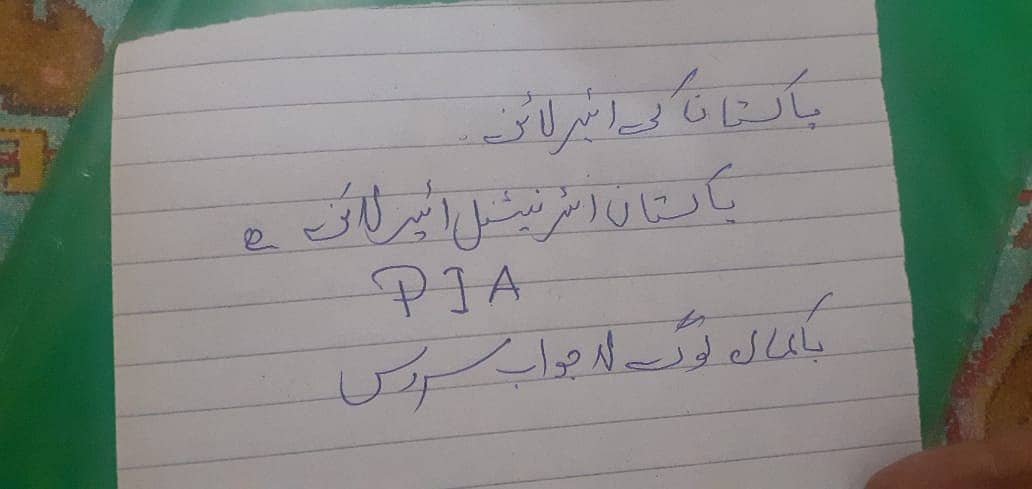 پاکستان کی ائیر لائن۔
پاکستان انٹرنیشنل ائیر لائن ہے
PIA
باکمال لوگ لاجواب سروس